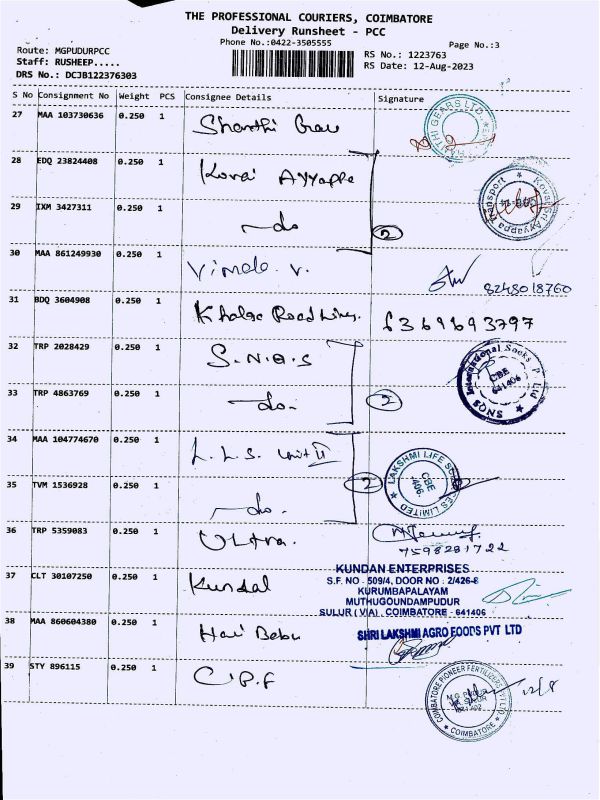 THE PROFESSIONAL COURIERS, COIMBATORE
Delivery Runsheet - PCC
Phone No.:0422-3505555
Page No.:3
Route: MGPUDURPCC
Staff: RUSHEEP.....
DRS No.: DCJB122376303
RS No.: 1223763
RS Date: 12-Aug-2023
S No Consignment No Weight PCS Consignee Details Signature
27 MAA 103730636 0.250 1 Shanthi Gear
28 EDQ 23824408 0.250 1 Kovai Ayyappa
Kovai Sri Ayyappa Transport
29 IXM 3427311 0.250 1 -do 2
30 MAA 861249930 0.250 1 Vimala V. 8248018760
31 BDQ 3604908 0.250 1 Khalsa Roadlines. 6369693797
32 TRP 2028429 0.250 1 S.N.Q.S
SNQS International Socks P Ltd
CBE
641406
33 TRP 4863769 0.250 1 -do- 2
34 MAA 104774670 0.250 1 L.L.S. Unit II
LAKSHMI LIFE SCIENCES LIMITED
CBE
406.
35 TVM 1536928 0.250 1 -do- 2
36 TRP 5359083 0.250 1 Ultra. 7598281722
37 CLT 30107250 0.250 1 Kundal
KUNDAN ENTERPRISES
S.F. NO - 509/4, DOOR NO : 2/426-8
KURUMBAPALAYAM
MUTHUGOUNDAMPUDUR
SULUR (VIA) . COIMBATORE - 641406
38 MAA 860604380 0.250 1 Hari Babu
SHRI LAKSHMI AGRO FOODS PVT LTD
39 STY 896115 0.250 1 C.P.F
COIMBATORE PIONEER FERTILIZERS PVT LTD
COIMBATORE
12/8